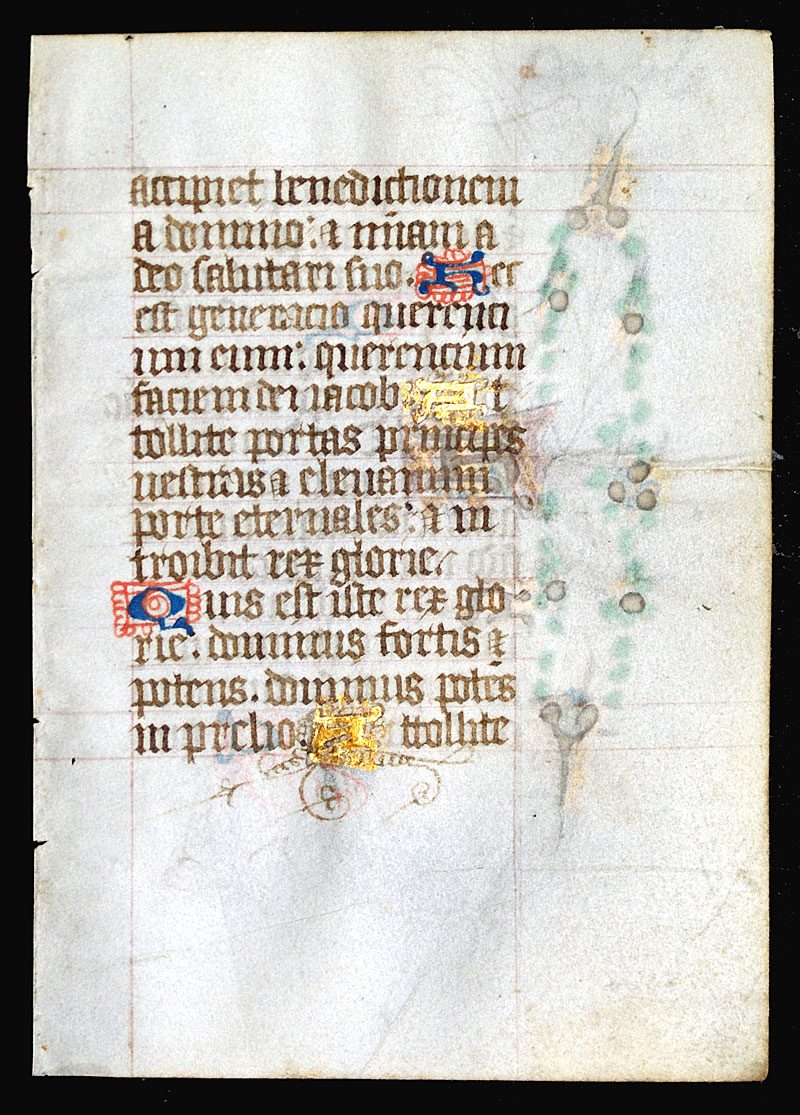 accipiet benedictionem
a domino: & miam a
deo salutari suo. Hec
est generacio querenci
um eum: querencium
faciem dei iacob. At
tollite portas principes
vestras & elevamini
porte eternales: & in
troibit rex glorie.
Quis est iste rex glo
rie. dominus fortis &
potens. dominus potēs
in prelio. Attollite